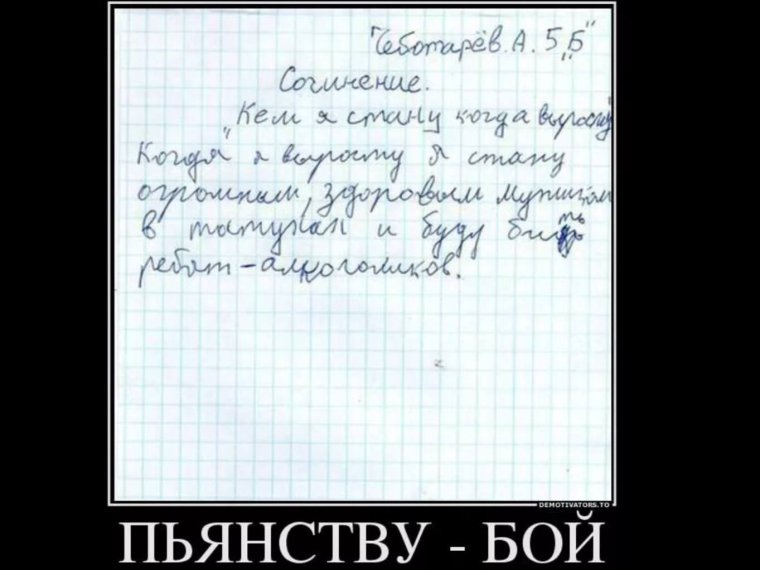 Чеботарёв. А. 5 "Б"
Сочинение.
"Кем я стану когда вырасту"
Когда я выросту я стану
огромным, здоровым мужиком
в татухах и буду бить
ребят-алкоголиков.
DEMOTIVATORS.TO
ПЬЯНСТВУ - БОЙ